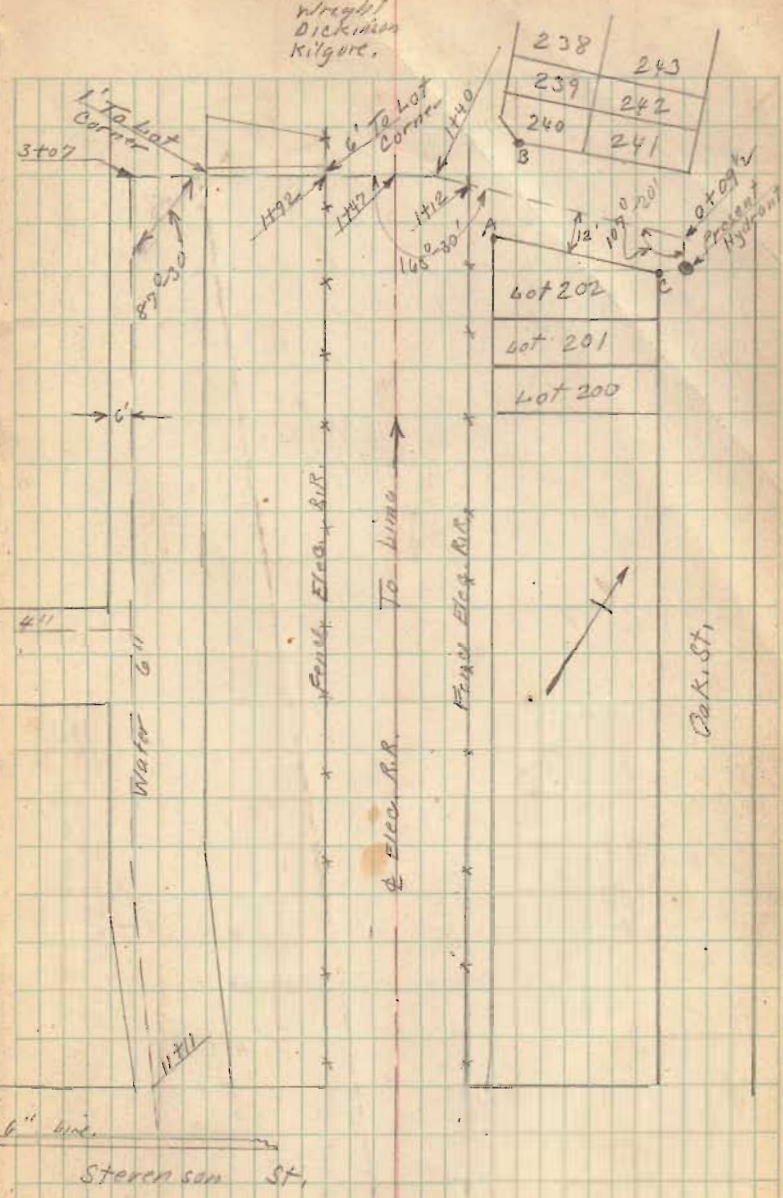 Wright
Dickinson
Kilgore.
238
243
239
242
240
241
B
1' To Lot
Corner
3+07
6' To Lot
Corner
1+40
1+92
1+47
1+12
87°-30'
165°-30'
A
12'
109°-20'
0+09½
Present
Hydrant
C
Lot 202
Lot 201
Lot 200
6'
Fence Elec. R.R.
To Lima
Fence Elec. R.R.
4"
Water 6"
Oak. St.
℄ Elec. R.R.
11+11
6" Line.
Stevenson St.